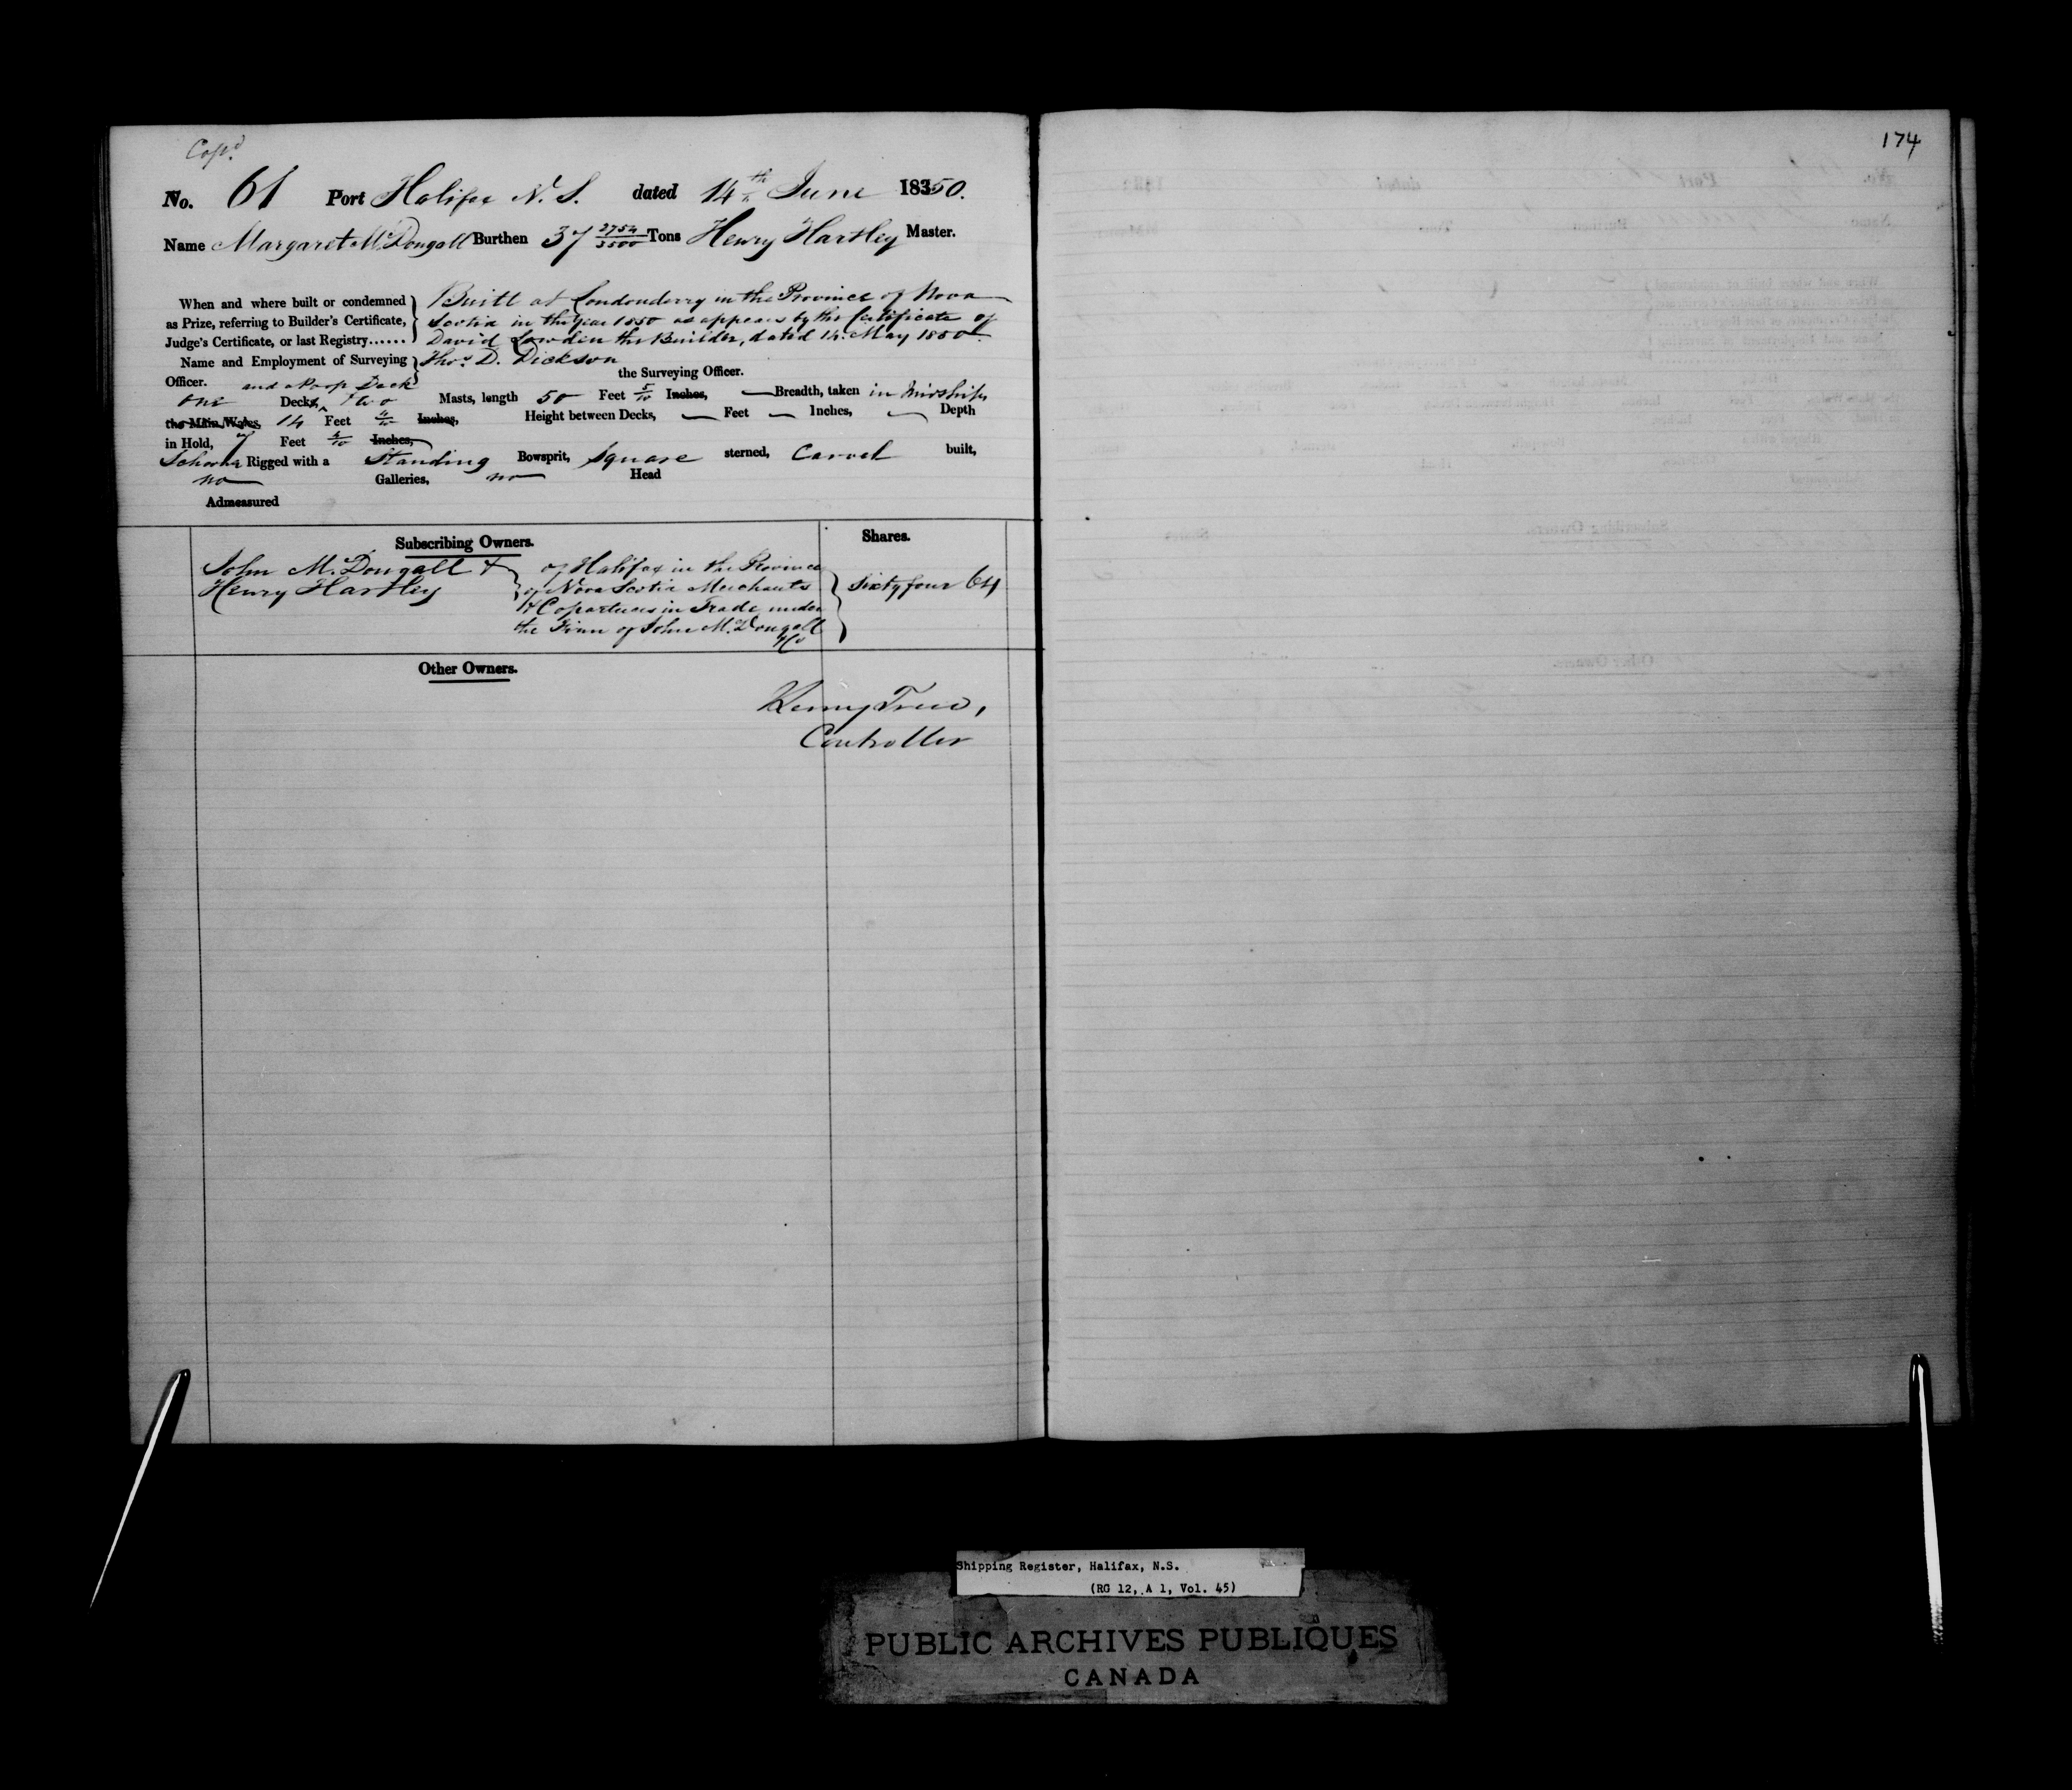 Cop.d
174
No. 61 Port Halifax N. S. dated 14th June 18350.
Name Margaret McDougall Burthen 37 2754/3500 Tons Henry Hartley Master.
When and where built or condemned Built at Londonderry in the Province of Nova
as Prize, referring to Builder's Certificate, Scotia in the Year 1850 as appears by the Certificate of
Judge's Certificate, or last Registry...... David Lowden the Builder, dated 14 May 1850.
Name and Employment of Surveying Thos. D. Dickson
Officer. the Surveying Officer.
and a Poop Deck
one Decks, two Masts, length 50 Feet 5/10 Inches, Breadth, taken in Midships
the Main Wales, 14 Feet Inches, Height between Decks, — Feet — Inches, — Depth
in Hold, 7 Feet Inches,
Schooner Rigged with a Standing Bowsprit, Square sterned, Carvel built,
no Galleries, no Head
Admeasured
Subscribing Owners. Shares.
John McDougall & of Halifax in the Province
Henry Hartley of Nova Scotia Merchants Sixty four 64
& Copartners in Trade under
the Firm of John McDougall
& Co
Other Owners.
Controller
Shipping Register, Halifax, N.S.
(RG 12, A 1, Vol. 45)
PUBLIC ARCHIVES PUBLIQUES
CANADA